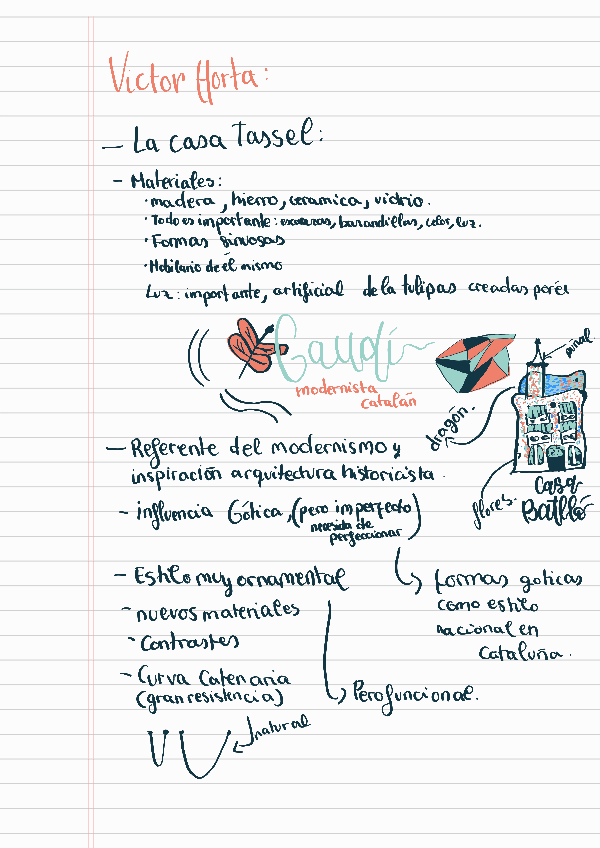 Victor Horta:
- La casa Tassel:
- Materiales:
· madera, hierro, ceramica, vidrio.
· Todo es importante: escaleras, barandillas, color, luz.
· Formas sinuosas
· Mobiliario de él mismo
Luz: importante, artificial de la tulipas creadas por él
Gaudí
modernista
catalán
pinal
dragón.
flores.
Casa
Batlló
- Referente del modernismo y
inspiración arquitectura historicista.
- influencia Gótica, (pero imperfecto
necesida de
perfeccionar)
formas goticas
como estilo
nacional en
Cataluña.
- Estilo muy ornamental
Pero funcional.
- nuevos materiales
- Contrastes
- Curva Catenaria
(gran resistencia)
natural